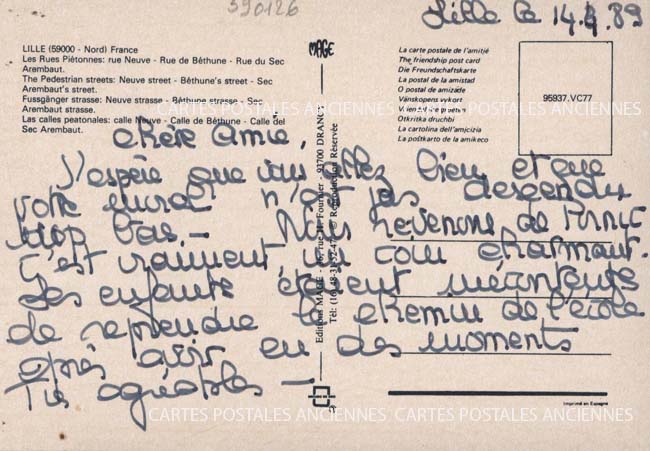 390126
Lille le 14.4.89
LILLE (59000 - Nord) France
Les Rues Piétonnes: rue Neuve - Rue de Béthune - Rue du Sec
Arembaut.
The Pedestrian streets: Neuve street - Béthune's street - Sec
Arembaut's street.
Fussgänger strasse: Neuve strasse - Béthune strasse - Sec
Arembaut strasse.
Las calles peatonales: calle Neuve - Calle de Béthune - Calle del
Sec Arembaut.
MAGE
La carte postale de l'amitié
The friendship post card
Die Freundschaftskarte
La postal de la amistad
O postal de amizade
Vänskopens vykort
Otkritka druchbi
La cartolina dell'amicizia
La poŝtkarto de la amikeco
95937.VC77
Editions MAGE - 93700 DRANCY
Reproduction Réservée
Chère Amie,
J'espère que vous allez bien et que
votre moral n'est pas descendu
trop bas - Nous revenons de
C'est vraiment un coin charmant.
Les enfants étaient mécontents
de reprendre le chemin de l'école
après avoir eu des moments
Très agréables -
Imprimé en Espagne
CARTES POSTALES ANCIENNES CARTES POSTALES ANCIENNES
CARTES POSTALES ANCIENNES CARTES POSTALES ANCIENNES